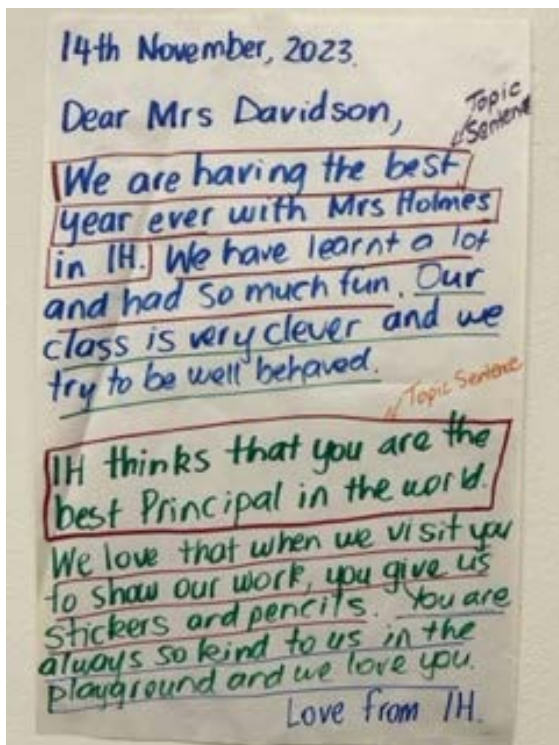 14th November, 2023.
Dear Mrs Davidson,
Topic
Sentence
We are having the best
year ever with Mrs Holmes
in 1H. We have learnt a lot
and had so much fun. Our
class is very clever and we
try to be well behaved.
Topic Sentence
1H thinks that you are the
best Principal in the world.
We love that when we visit you
to show our work, you give us
stickers and pencils. You are
always so kind to us in the
playground and we love you.
Love from 1H.